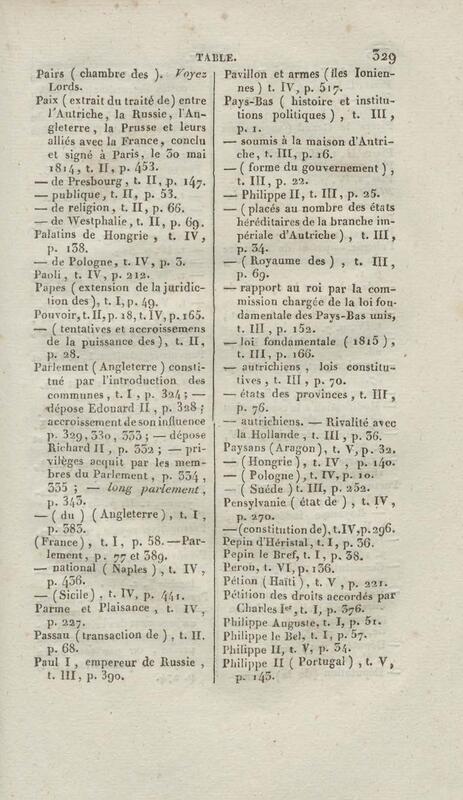 TABLE. 329
Pairs ( chambre des ). Voyez
Lords.
Paix ( extrait du traité de) entre
l'Autriche, la Russie, l'An-
gleterre, la Prusse et leurs
alliés avec la France, conclu
et signé à Paris, le 30 mai
1814, t. II, p. 453.
— de Presbourg, t. II, p. 147.
— publique, t. II, p. 53.
— de religion, t. II, p. 66.
— de Westphalie, t. II, p. 69.
Palatins de Hongrie, t. IV,
p. 138.
— de Pologne, t. IV, p. 3.
Paoli, t. IV, p. 212.
Papes ( extension de la juridic-
tion des ), t. I, p. 49.
Pouvoir, t. II, p. 18, t. IV, p. 165.
— ( tentatives et accroissemens
de la puissance des ), t. II,
p. 28.
Parlement ( Angleterre ) consti-
tué par l'introduction des
communes, t. I, p. 324; —
dépose Edouard II, p. 328;
accroissement de son influence
p. 329, 330, 333; — dépose
Richard II, p. 332; — pri-
vilèges acquit par les mem-
bres du Parlement, p. 334,
335; — long parlement,
p. 343.
— ( du ) ( Angleterre ), t. I,
p. 383.
(France), t. I, p. 58. — Par-
lement, p. 77 et 389.
— national ( Naples ), t. IV,
p. 436.
— (Sicile), t. IV, p. 441.
Parme et Plaisance, t. IV,
p. 227.
Passau (transaction de ), t. II.
p. 68.
Paul I, empereur de Russie,
t. III, p. 390.
Pavillon et armes (îles Ionien-
nes ) t. IV, p. 517.
Pays-Bas ( histoire et institu-
tions politiques ), t. III,
p. 1.
— soumis à la maison d'Autri-
che, t. III, p. 16.
— ( forme du gouvernement ),
t. III, p. 22.
— Philippe II, t. III, p. 25.
— ( placés au nombre des états
héréditaires de la branche im-
périale d'Autriche ), t. III,
p. 34.
— ( Royaume des ), t. III,
p. 69.
— rapport au roi par la com-
mission chargée de la loi fon-
damentale des Pays-Bas unis,
t. III, p. 152.
— loi fondamentale ( 1815 ),
t. III, p. 166.
— autrichiens, lois constitu-
tives, t. III, p. 70.
— états des provinces, t. III,
p. 76.
— autrichiens. — Rivalité avec
la Hollande, t. III, p. 36.
Paysans (Aragon), t. V, p. 32.
— (Hongrie), t. IV, p. 140.
— ( Pologne ), t. IV, p. 10.
— ( Suède ) t. III, p. 252.
Pensylvanie ( état de ), t. IV,
p. 270.
— (constitution de), t. IV, p. 296.
Pepin d'Héristal, t. I, p. 36.
Pepin le Bref, t. I, p. 38.
Peron, t. VI, p. 136.
Pétion (Haïti), t. V, p. 221.
Pétition des droits accordés par
Charles Ier, t. I, p. 376.
Philippe Auguste, t. I, p. 51.
Philippe le Bel, t. I, p. 57.
Philippe II, t. V, p. 34.
Philippe II ( Portugal ), t. V,
p. 143.